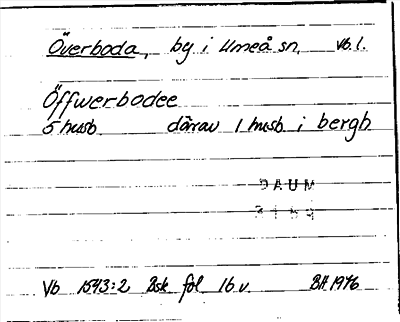 Överboda, by i Umeå sn, Vb. l.
Öffwerbodee
5 husb. därav 1 husb. i bergh
DAUM
Vb 1543:2 Bsk fol 16 v. BH 1976